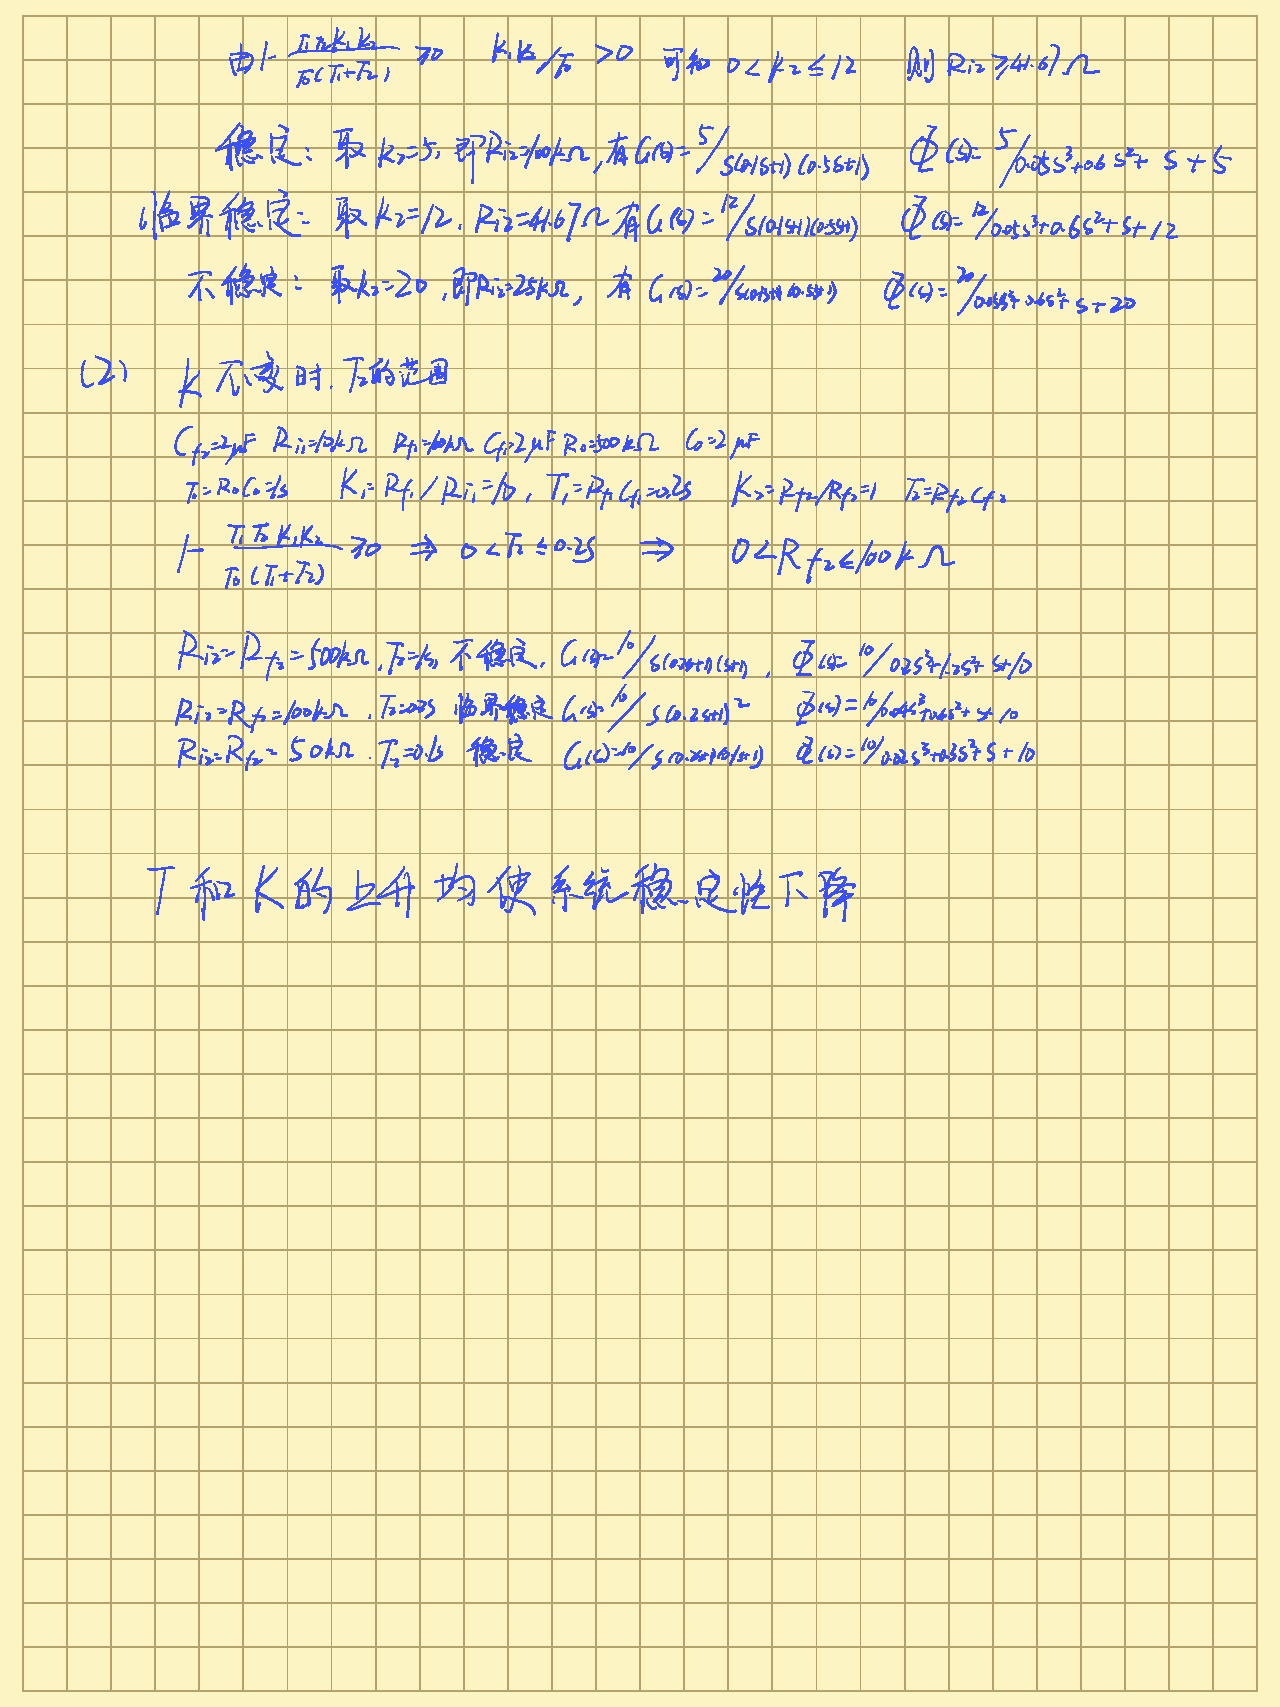 由1-T₁T₂K₁K₂/T₀(T₁+T₂)≥0 K₁K₂/T₀>0 可知 0<K₂≤12 则 Ri₂≥41.67Ω
稳定: 取K₂=5, 即Ri₂=100kΩ, 有G(s)=5/s(0.1s+1)(0.5s+1) Φ(s)=5/0.05s³+0.6s²+s+5
临界稳定: 取K₂=12, Ri₂=41.67Ω 有G(s)=12/s(0.1s+1)(0.5s+1) Φ(s)=12/0.05s³+0.6s²+s+12
不稳定: 取K₂=20, 即Ri₂=25kΩ, 有 G(s)=20/s(0.1s+1)(0.5s+1) Φ(s)=20/0.05s³+0.6s²+s+20
(2) K不变时, T₂的范围
Cf₂=2μF Ri₁=10kΩ Rf₁=100kΩ Cf₁=2μF R₀=500kΩ C₀=2μF
T₀=R₀C₀=1s K₁=Rf₁/Ri₁=10, T₁=Rf₁Cf₁=0.2s K₂=Rf₂/Rf₂=1 T₂=Rf₂Cf₂
1-T₁T₂K₁K₂/T₀(T₁+T₂)≥0 ⇒ 0<T₂≤0.2s ⇒ 0<Rf₂≤100kΩ
Ri₂=Rf₂=500kΩ, T₂=1s, 不稳定, G(s)=10/s(0.2s+1)(s+1), Φ(s)=10/0.2s³+1.2s²+s+10
Ri₂=Rf₂=100kΩ, T₂=0.2s 临界稳定 G(s)=10/s(0.2s+1)² Φ(s)=10/0.04s³+0.4s²+s+10
Ri₂=Rf₂=50kΩ, T₂=0.1s 稳定 G(s)=10/s(0.2s+1)(0.1s+1) Φ(s)=10/0.02s³+0.3s²+s+10
T和K的上升均使系统稳定性下降